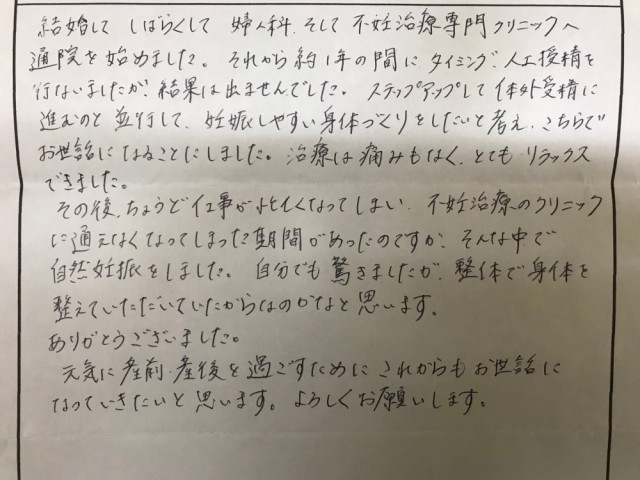 結婚して しばらくして 婦人科、そして 不妊治療専門クリニックへ
通院を始めました。それから約1年の間に タイミング、人工授精を
行ないましたが、結果は出ませんでした。ステップアップして体外受精に
進むのと並行して、妊娠しやすい身体づくりをしたいと考え、こちらで
お世話になることにしました。治療は痛みもなく、とてもリラックス
できました。
その後、ちょうど仕事が忙しくなってしまい、不妊治療のクリニック
に通えなくなってしまった期間があったのですが、そんな中で
自然妊娠をしました。自分でも驚きましたが、整体で身体を
整えていただいていたからなのかなと思います。
ありがとうございました。
元気に産前・産後を過ごすために これからもお世話に
なっていきたいと思います。よろしくお願いします。